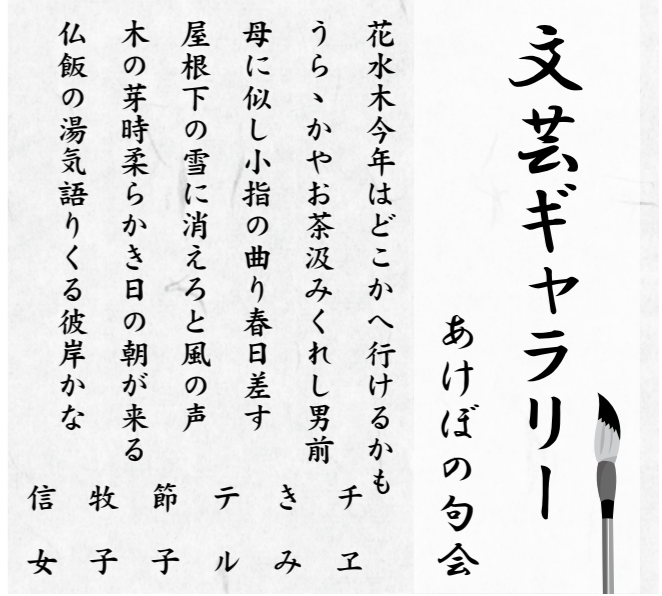 文芸ギャラリー
あけぼの句会
花水木今年はどこかへ行けるかも
チヱ
うらゝかやお茶汲みくれし男前
きみ
母に似し小指の曲り春日差す
テル
屋根下の雪に消えろと風の声
節子
木の芽時柔らかき日の朝が来る
牧子
仏飯の湯気語りくる彼岸かな
信女